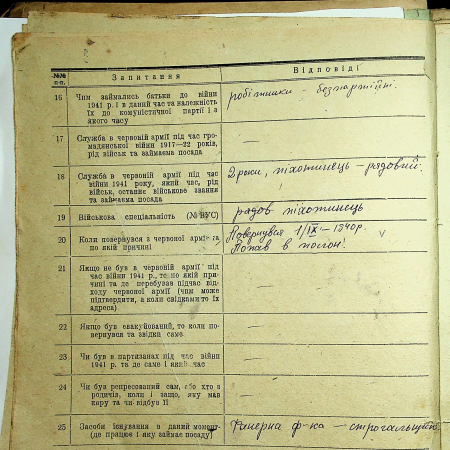 №№ п-п. Запитання Відповіді
16 Чим займались батьки до війни
1941 р. і в даний час та належність
їх до комуністичної партії і з
якого часу
робітники - безпартійні.
17 Служба в червоній армії під час гро-
мадянської війни 1917—22 років,
рід військ та займаєма посада
—
18 Служба в червоній армії під час
війни 1941 року, який час, рід
військ, останнє військове звання
та займаєма посада
2 роки, піхотинець - рядовий.
19 Військова спеціальність (№ ВУС)
рядов піхотинець
20 Коли повернувся з червоної армії та
по якій причині
Повернувся 1/IX - 1940р.
Попав в полон.
21 Якщо не був в червоній армії під
час війни 1941 р., то по якій при-
чині та де перебував підчас від-
ходу червоної армії (чим може
підтвердити, а коли свідками то їх
адреса)
—
22 Якщо був евакуйований, то коли по-
вернувся та звідки саме
—
23 Чи був в партизанах під час війни
1941 р. та де саме і який час
—
24 Чи був репресований сам, або хто з
родичів, коли і защо, яку мав
кару та чи відбув її
—
25 Засоби існування в даний момент
(де працює і яку займає посаду)
Фанерна ф-ка - строгальщик